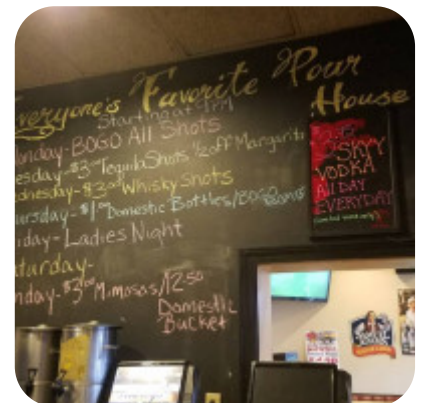 veryone's Favorite Pour
House
Starting at 9PM
onday-BOGO All Shots
esday-$3.00 Tequila Shots ½ off Margarit
dnesday-$3.00 Whisky Shots
ursday-$1.00 Domestic Bottles/BOGO
iday-Ladies Night
aturday-
nday-$3.00 Mimosas/12.50
Domestic
Bucket
SKYY
VODKA
All DAY
EVERYDAY